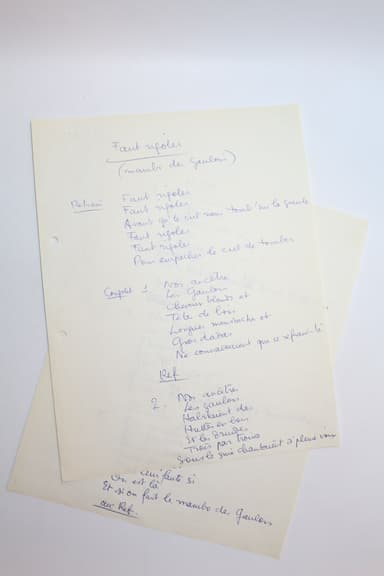 Faut rigoler
(mambo des Gaulois)
Refrain Faut rigoler
Faut rigoler
Avant qu'le ciel nous tomb' sur la gueule
Faut rigoler
Faut rigoler
Pour empêcher le ciel de tomber
Couplet 1 Nos ancêtres
Les Gaulois
Cheveux blonds et
Têtes de bois
Longues moustaches et
Gros dadas
Ne connaissaient que ce refrain-là
Ref
2. Nos ancêtres
Les gaulois
Habitaient des
Huttes en bois
Et les
Trois par trois
Sous le gui chantaient à pleine voix
enfants si
On est là
Et si on fait le mambo des Gaulois
au Ref.